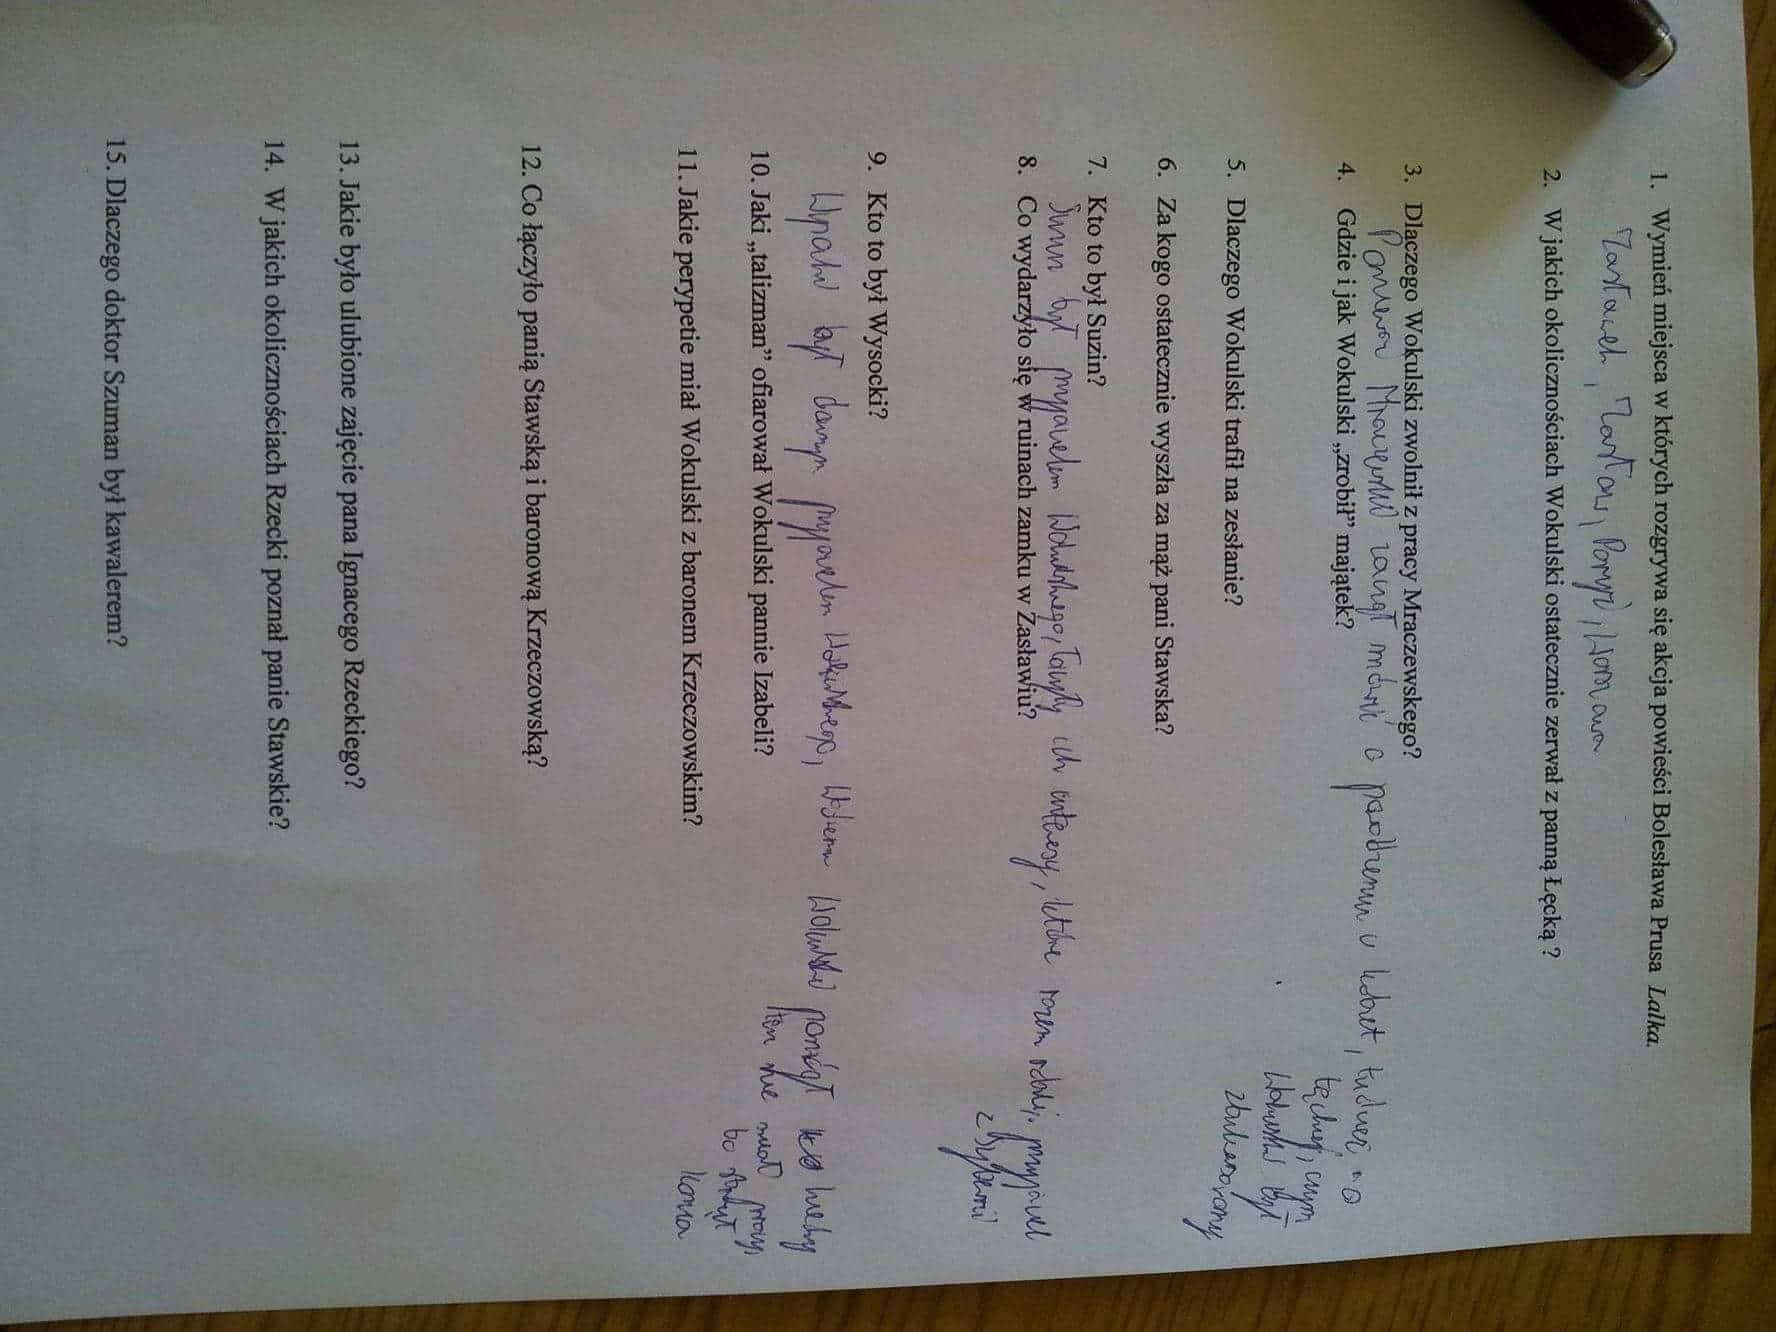 1. Wymień miejsca w których rozgrywa się akcja powieści Bolesława Prusa Lalka.
Zasławek, Zasław, Paryż, Warszawa
2. W jakich okolicznościach Wokulski ostatecznie zerwał z panną Łęcką ?
3. Dlaczego Wokulski zwolnił z pracy Mraczewskego?
Ponieważ Mraczewski zaczął mówić o powodzeniu u kobiet, o
4. Gdzie i jak Wokulski „zrobił” majątek?
Łęckiej, czym
Wokulski był
5. Dlaczego Wokulski trafił na zesłanie?
6. Za kogo ostatecznie wyszła za mąż pani Stawska?
7. Kto to był Suzin?
Suzin był przyjacielem Wokulskiego, łączyły ich interesy, które razem robili. przyjaciel
8. Co wydarzyło się w ruinach zamku w Zasławiu?
z Syberii
9. Kto to był Wysocki?
Wysocki był dawnym przyjacielem Wokulskiego, Wokulski pomógł kiedy
ten nie miał pracy,
10. Jaki „talizman” ofiarował Wokulski pannie Izabeli?
bo stracił
11. Jakie perypetie miał Wokulski z baronem Krzeczowskim?
konia
12. Co łączyło panią Stawską i baronową Krzeczowską?
13. Jakie było ulubione zajęcie pana Ignacego Rzeckiego?
14. W jakich okolicznościach Rzecki poznał panie Stawskie?
15. Dlaczego doktor Szuman był kawalerem?